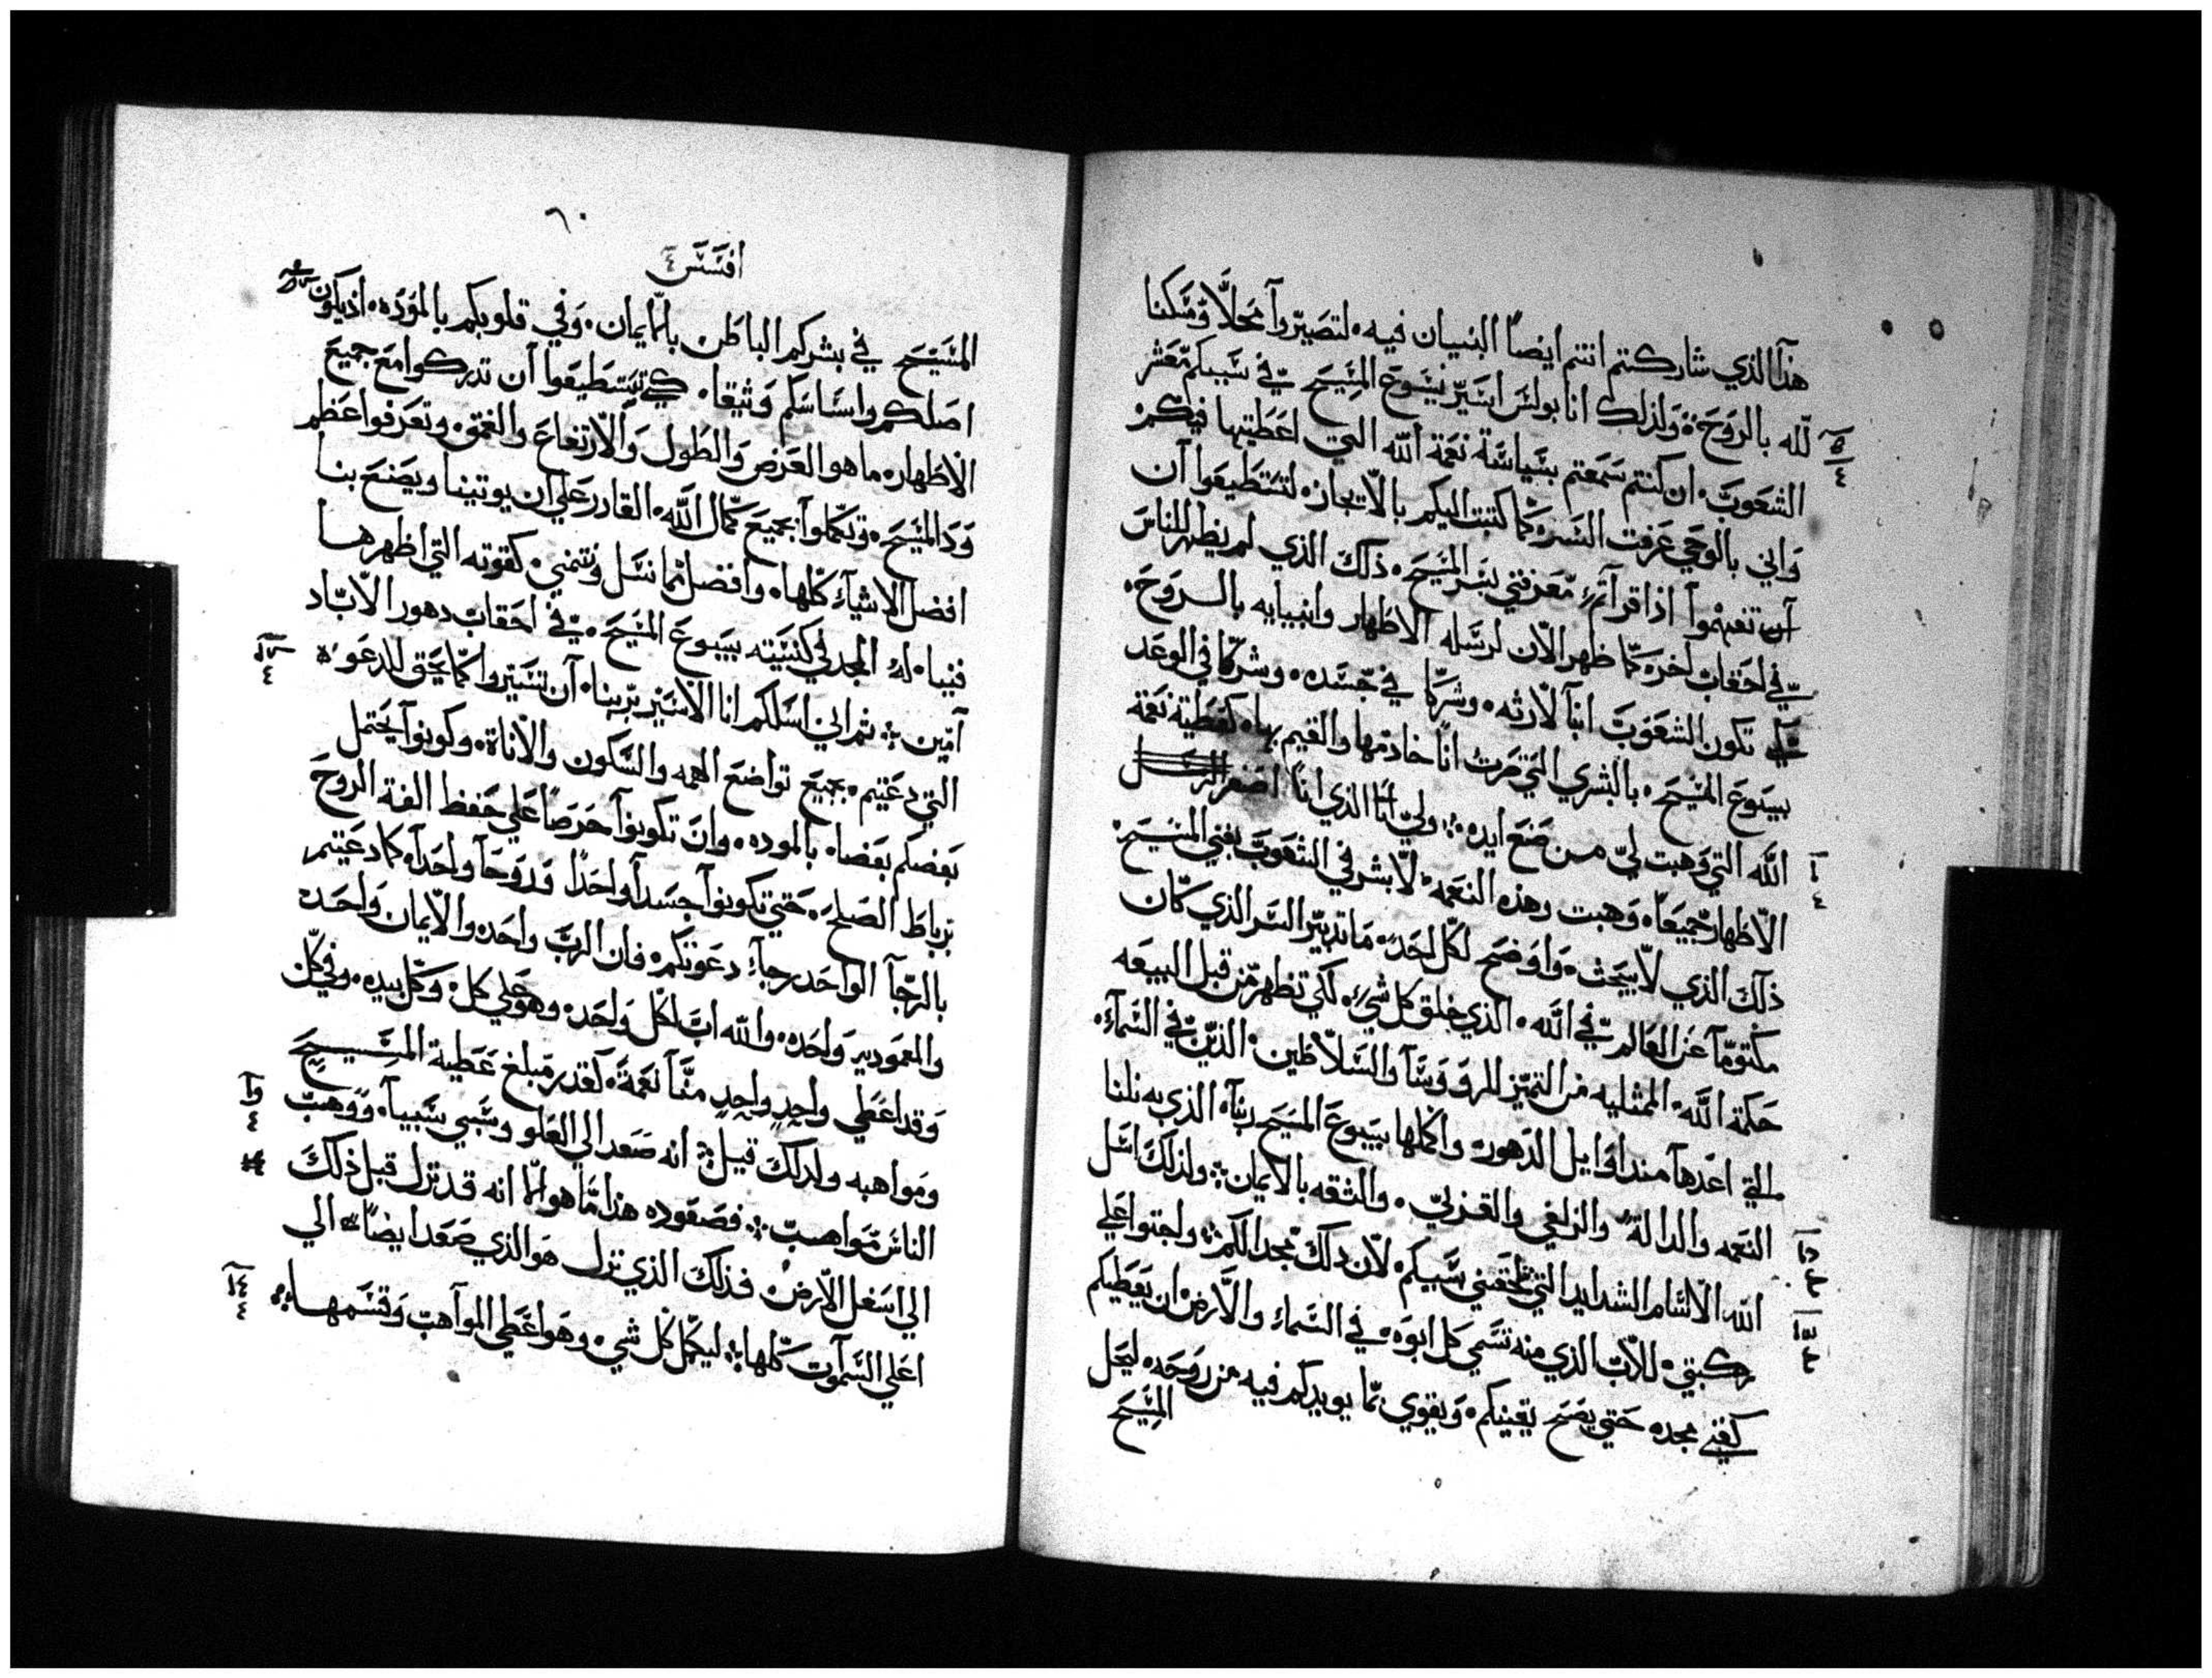 هذا الذي شاركتم انتم ايضا البنيان فيه لتصيروا محلا ومسكنا
لله بالروح ولذلك انا بولس اسير يسوع المسيح في سببكم معشر
الشعوب ان كنتم سمعتم بسياسة نعمة الله التي اعطيتها فيكم
واني بالوحي عرفت السر كما كتبت اليكم بالايجاز لتستطيعوا ان
تفهموا اذا قراتم معرفتي بسر المسيح ذلك الذي لم يظهر للناس
في احقاب اخر كما ظهر الان لرسله الاطهار وانبيايه بالروح
تكون الشعوب ابنا لارثه وشركا في جسده وشركا في الوعد
بيسوع المسيح بالبشري التي صرت انا خادمها والقيم بها كعطية نعمة
الله التي وهبت لي من صنع ايده ولي انا الذي انا اصغر
الاطهار جميعا وهبت هذه النعمه لابشر في الشعوب بغني المسيح
ذلك الذي لا يبحث واوضح لكل احد ما تدبير السر الذي كان
مكتوما عن العالم في الله الذي خلق كل شي لكي تظهر من قبل البيعه
حكمة الله الممثليه من التميز للرووسا والسلاطين الذين في السماء
التي اعدها منذ اوايل الدهور واكملها بيسوع المسيح ربنا الذي به نلنا
النعمه والدالة والزلفي والقربي والثقه بالايمان ولذلك اسل
الله الا اسام الشدايد التي تلحقني بسببكم لان ذلك مجدا لكم واجثوا علي
ركبتي للاب الذي منه تسمي كل ابوه في السماء والارض ان يعطيكم
كغني مجده حتي يصح يقينكم ويقوي بما يويدكم فيه من روحه ليحل
المسيح
٦٠
افسس ٤
المسيح في بشركم الباطن بالايمان وفي قلوبكم بالموده اذ يكون
اصلكم واساسكم وثيقا كي تستطيعوا ان تدركوا مع جميع
الاطهار ما هو العرض والطول والارتفاع والعمق وتعرفوا عظم
ود المسيح وتكملوا بجميع كمال الله القادر علي ان يوتينا ويصنع بنا
افضل الاشياء كلها وافضل مما نسل ونتمني كقوته التي اظهرها
فينا له المجد في كنيسته بيسوع المسيح في احقاب دهور الاباد
امين ثم اني اسلكم انا الاسير بربنا ان تسيروا كما يحق للدعوه
التي دعيتم بجميع تواضع الهمه والسكون والاناة وكونوا يحتمل
بعضكم بعضا بالموده وان تكونوا حرصا علي حفظ الفة الروح
برباط الصلح حتي تكونوا جسدا واحدا وروحا واحدا كما دعيتم
بالرجا الواحد رجاء دعوتكم فان الرب واحد والايمان واحد
والمعموديه واحده والله اب لكل واحد وهو علي كل وكل بيده وفي كل
وقد اعطي واحد واحد منا نعمة كقدر مبلغ عطية المسيح
ومواهبه ولذلك قيل انه صعد الي العلو وسبي سبيا ووهب
الناس مواهب فصعوده هذا ما هو الا انه قد نزل قبل ذلك
الي اسفل الارض فذلك الذي نزل هو الذي صعد ايضا الي
اعلي السموات كلها ليكمل كل شي وهو اعطي المواهب وقسمها